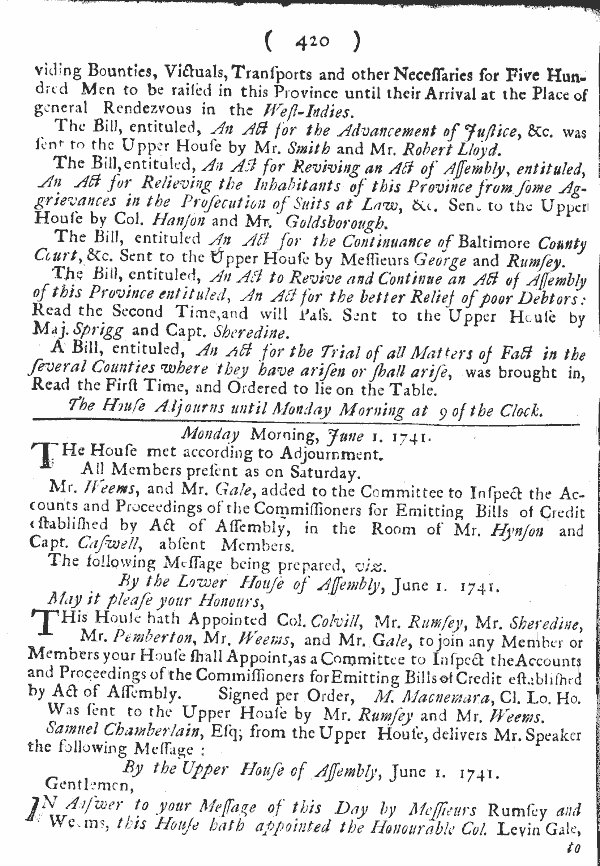 ( 420 )
viding Bounties, Victuals, Tranſports and other Neceſſaries for Five Hun-
dred Men to be raiſed in this Province until their Arrival at the Place of
general Rendezvous in the Weſt-Indies.
The Bill, entituled, An Act for the Advancement of Juſtice, &c. was
ſent to the Upper Houſe by Mr. Smith and Mr. Robert Lloyd.
The Bill, entituled, An Act for Reviving an Act of Aſſembly, entituled,
An Act for Relieving the Inhabitants of this Province from ſome Ag-
grievances in the Proſecution of Suits at Law, &c. Sent to the Upper
Houſe by Col. Hanſon and Mr. Goldsborough.
The Bill, entituled An Act for the Continuance of Baltimore County
Court, &c. Sent to the Upper Houſe by Meſſieurs George and Rumſey.
The Bill, entituled, An Act to Revive and Continue an Act of Aſſembly
of this Province entituled, An Act for the better Relief of poor Debtors:
Read the Second Time, and will Paſs. Sent to the Upper Houſe by
Maj. Sprigg and Capt. Sheredine.
A Bill, entituled, An Act for the Trial of all Matters of Fact in the
ſeveral Counties where they have ariſen or ſhall ariſe, was brought in,
Read the Firſt Time, and Ordered to lie on the Table.
The Houſe Adjourns until Monday Morning at 9 of the Clock.
Monday Morning, June 1. 1741.
THe Houſe met according to Adjournment.
All Members preſent as on Saturday.
Mr. Weems, and Mr. Gale, added to the Committee to Inſpect the Ac-
counts and Proceedings of the Commiſſioners for Emitting Bills of Credit
eſtabliſhed by Act of Aſſembly, in the Room of Mr. Hynſon and
Capt. Caſwell, abſent Members.
The following Meſſage being prepared, viz.
By the Lower Houſe of Aſſembly, June 1. 1741.
May it pleaſe your Honours,
THis Houſe hath Appointed Col. Colvill, Mr. Rumſey, Mr. Sheredine,
Mr. Pemberton, Mr. Weems, and Mr. Gale, to join any Member or
Members your Houſe ſhall Appoint, as a Committee to Inſpect the Accounts
and Proceedings of the Commiſſioners for Emitting Bills of Credit eſtabliſhed
by Act of Aſſembly. Signed per Order, M. Macnemara, Cl. Lo. Ho.
Was ſent to the Upper Houſe by Mr. Rumſey and Mr. Weems.
Samuel Chamberlain, Eſq; from the Upper Houſe, delivers Mr. Speaker
the following Meſſage :
By the Upper Houſe of Aſſembly, June 1. 1741.
Gentlemen,
IN Anſwer to your Meſſage of this Day by Meſſieurs Rumſey and
Weems, this Houſe hath appointed the Honourable Col. Levin Gale,
to